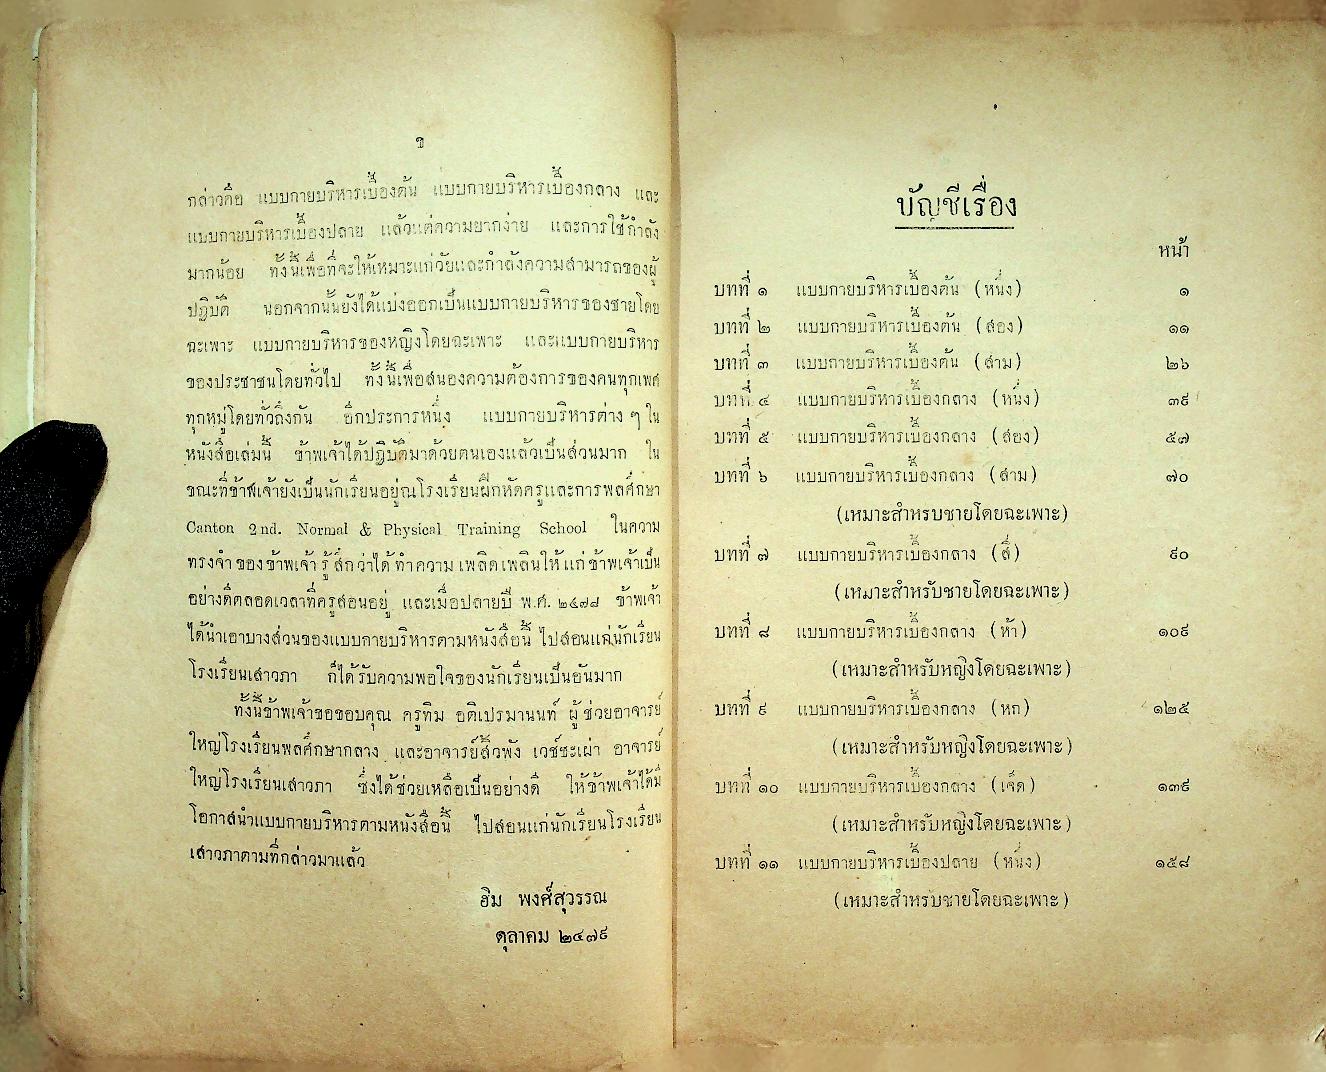 ข
กล่าวคือ แบบกายบริหารเบื้องต้น แบบกายบริหารเบื้องกลาง และ
แบบกายบริหารเบื้องปลาย แล้วแต่ความยากง่าย และการใช้กำลัง
มากน้อย ทั้งนี้เพื่อที่จะให้เหมาะแก่วัยและกำลังความสามารถของผู้
ปฏิบัติ นอกจากนั้นยังได้แบ่งออกเป็นแบบกายบริหารของชายโดย
ฉะเพาะ แบบกายบริหารของหญิงโดยฉะเพาะ และแบบกายบริหาร
ของประชาชนโดยทั่วไป ทั้งนี้เพื่อสนองความต้องการของคนทุกเพศ
ทุกหมู่โดยทั่วถึงกัน อีกประการหนึ่ง แบบกายบริหารต่าง ๆ ใน
หนังสือเล่มนี้ ข้าพเจ้าได้ปฏิบัติมาด้วยตนเองแล้วเป็นส่วนมาก ใน
ขณะที่ข้าพเจ้ายังเป็นนักเรียนอยู่ณโรงเรียนฝึกหัดครูและการพลศึกษา
Canton 2nd. Normal & Physical Training School ในความ
ทรงจำของข้าพเจ้ารู้สึกว่าได้ทำความเพลิดเพลินให้แก่ข้าพเจ้าเป็น
อย่างดีตลอดเวลาที่ครูสอนอยู่ และเมื่อปลายปี พ.ศ. ๒๔๗๘ ข้าพเจ้า
ได้นำเอาบางส่วนของแบบกายบริหารตามหนังสือนี้ ไปสอนแก่นักเรียน
โรงเรียนเสาวภา ก็ได้รับความพอใจของนักเรียนเป็นอันมาก
ทั้งนี้ข้าพเจ้าขอขอบคุณ ครูทิม อติเปรมานนท์ ผู้ช่วยอาจารย์
ใหญ่โรงเรียนพลศึกษากลาง และอาจารย์สิวพัง เวช์ชะเผ่า อาจารย์
ใหญ่โรงเรียนเสาวภา ซึ่งได้ช่วยเหลือเป็นอย่างดี ให้ข้าพเจ้าได้มี
โอกาสนำแบบกายบริหารตามหนังสือนี้ ไปสอนแก่นักเรียนโรงเรียน
เสาวภาตามที่กล่าวมาแล้ว
ฮิม พงศ์สุวรรณ
ตุลาคม ๒๔๗๙
บัญชีเรื่อง
หน้า
บทที่ ๑ แบบกายบริหารเบื้องต้น (หนึ่ง) ๑
บทที่ ๒ แบบกายบริหารเบื้องต้น (สอง) ๑๑
บทที่ ๓ แบบกายบริหารเบื้องต้น (สาม) ๒๖
บทที่ ๔ แบบกายบริหารเบื้องกลาง (หนึ่ง) ๓๙
บทที่ ๕ แบบกายบริหารเบื้องกลาง (สอง) ๕๗
บทที่ ๖ แบบกายบริหารเบื้องกลาง (สาม) ๗๐
(เหมาะสำหรับชายโดยฉะเพาะ)
บทที่ ๗ แบบกายบริหารเบื้องกลาง (สี่) ๙๐
(เหมาะสำหรับชายโดยฉะเพาะ)
บทที่ ๘ แบบกายบริหารเบื้องกลาง (ห้า) ๑๐๙
(เหมาะสำหรับหญิงโดยฉะเพาะ)
บทที่ ๙ แบบกายบริหารเบื้องกลาง (หก) ๑๒๕
(เหมาะสำหรับหญิงโดยฉะเพาะ)
บทที่ ๑๐ แบบกายบริหารเบื้องกลาง (เจ็ด) ๑๓๙
(เหมาะสำหรับหญิงโดยฉะเพาะ)
บทที่ ๑๑ แบบกายบริหารเบื้องปลาย (หนึ่ง) ๑๕๘
(เหมาะสำหรับชายโดยฉะเพาะ)